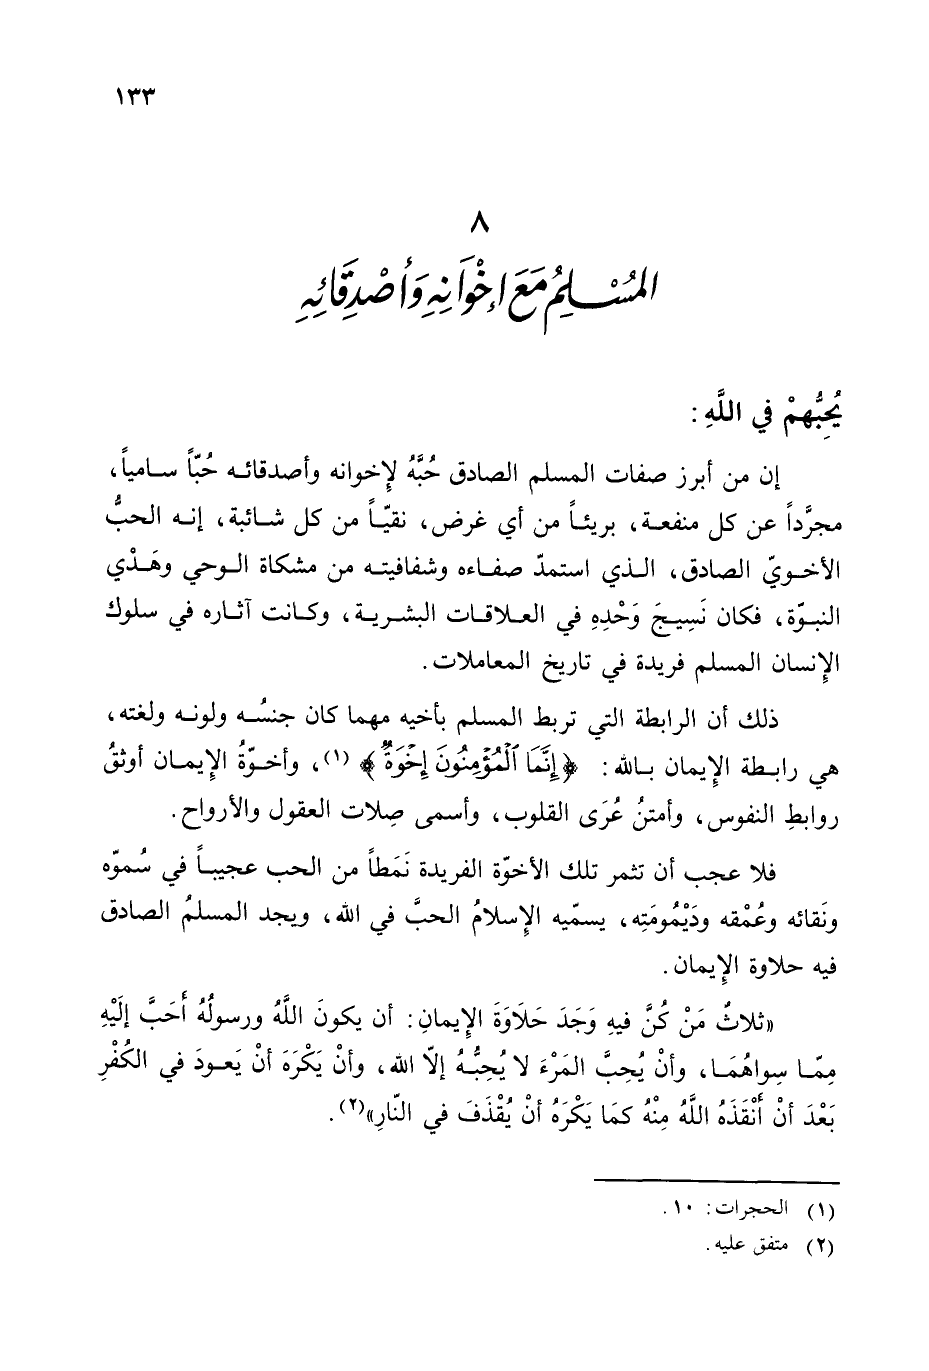 ١٣٣
٨
المُسْلِمُ مَعَ إِخْوَانِهِ وَأَصْدِقَائِهِ
يُحِبُّهمْ في اللَّهِ :
إن من أبرز صفات المسلم الصادق حُبَّهُ لإخوانه وأصدقائـه حُبّاً سـامياً،
مجرَّداً عن كل منفعـة، بريئـاً من أي غرض، نقيّـاً من كل شـائبة، إنـه الحبُّ
الأخـويّ الصادق، الـذي استمدّ صفـاءه وشفافيتـه من مشكاة الـوحي وهَـدْي
النبـوّة، فكان نَسِيـجَ وَحْدِهِ في العـلاقـات البشـريـة، وكـانت آثـاره في سلوك
الإنسان المسلم فريدة في تاريخ المعاملات.
ذلك أن الرابطة التي تربط المسلم بأخيه مهما كان جنسُـه ولونـه ولغته،
هي رابـطة الإيمان بـالله: ﴿إِنَّمَا ٱلْمُؤْمِنُونَ إِخْوَةٌ﴾ (١)، وأخـوّةُ الإيمـان أوثقُ
روابطِ النفوس، وأمتنُ عُرَى القلوب، وأسمى صِلات العقول والأرواح.
فلا عجب أن تثمر تلك الأخوّة الفريدة نَمَطاً من الحب عجيبـاً في سُموّه
ونَقائه وعُمْقه ودَيْمُومَتِه، يسمّيه الإسلامُ الحبَّ في الله، ويجد المسلمُ الصادق
فيه حلاوة الإيمان.
«ثلاثٌ مَنْ كُنَّ فيهِ وَجَدَ حَلَاوَةَ الإيمانِ: أن يكونَ اللَّهُ ورسولُهُ أَحَبَّ إلَيْهِ
مِمّـا سِواهُمَـا، وأنْ يُحِبَّ المَرْءَ لا يُحِبُّـهُ إلّا الله، وأنْ يَكْرَهَ أنْ يَعـودَ في الكُفْرِ
بَعْدَ أنْ أَنْقَذَهُ اللَّهُ مِنْهُ كمَا يَكْرَهُ أنْ يُقْذَفَ في النّارِ»(٢).
(١) الحجرات: ١٠.
(٢) متفق عليه.